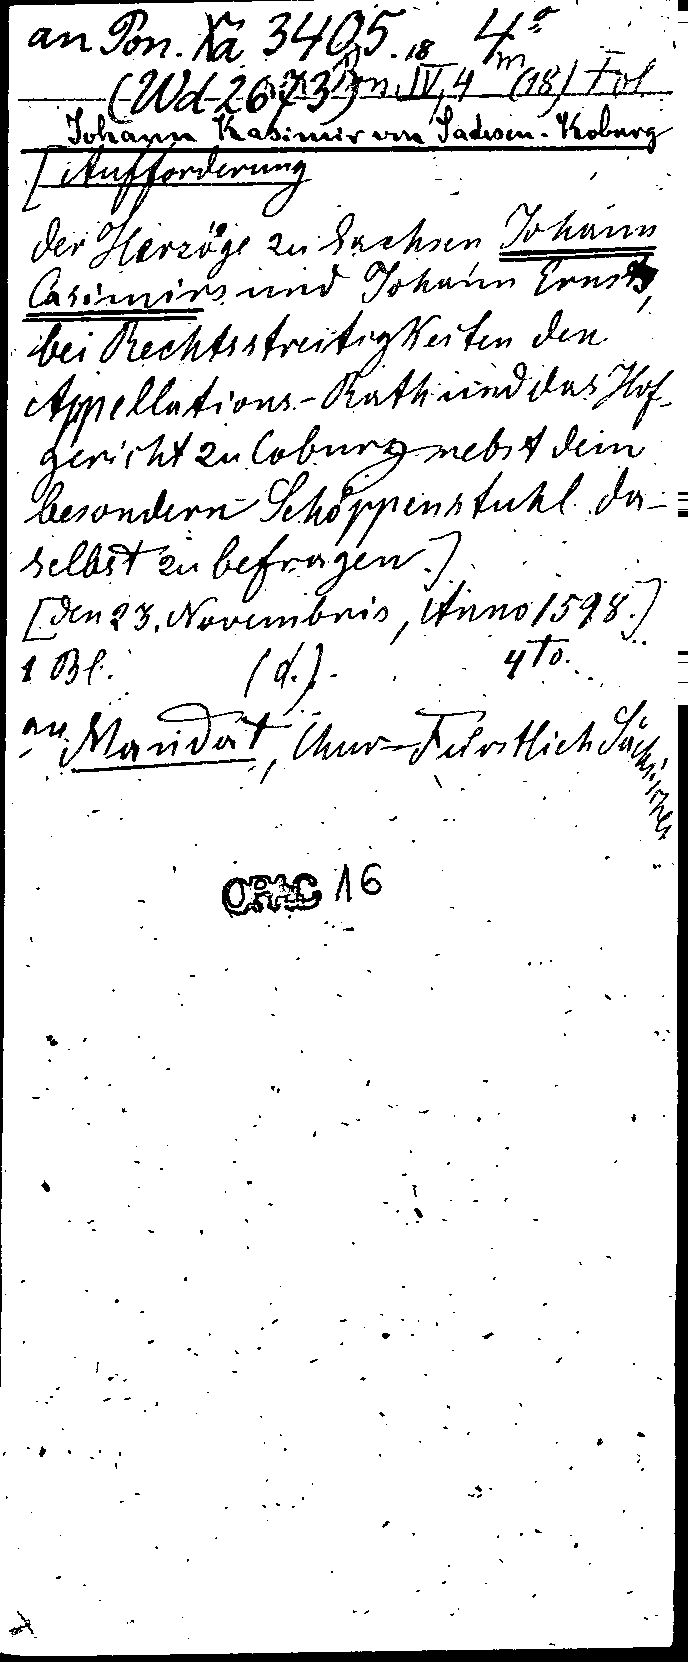 an Pon. Xa 3405.18 4°
(Wd 2673) m. IV, 4 m (18) Fol
Johann Kasimir von Sachsen-Koburg
[Aufforderung
der Herzöge zu Sachsen Johann
Casimirs und Johann Ernsts,
bei Rechtsstreitigkeiten den
Appellations-Rath und das Hof-
gericht zu Coburg nebst dem
besondern Schöppenstuhl da-
selbst zu befragen.]
[den 23. Novembris, Anno 1598.]
1 Bl. (d.). 4to.
an Mandat, Chur-Fürstlich Sächsisches
OPAC 16